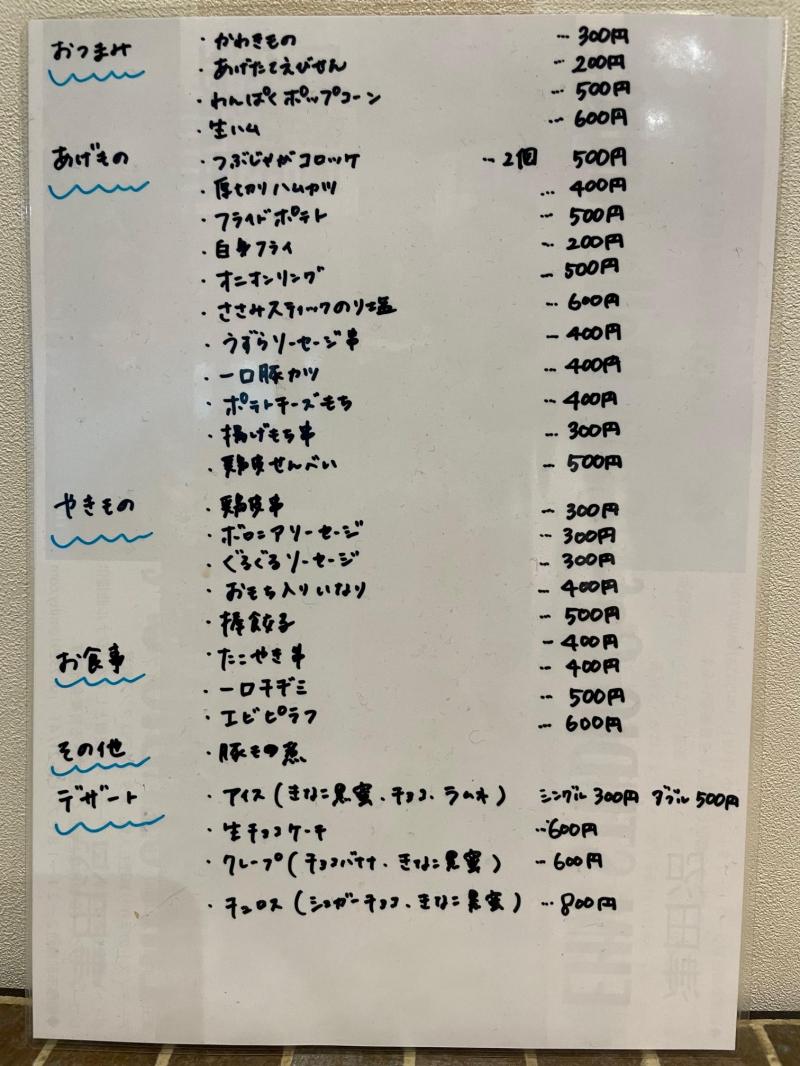 おつまみ ・かわきもの … 300円
・あげたてえびせん … 200円
・わんぱくポップコーン … 500円
・生ハム … 600円
あげもの ・つぶじゃがコロッケ … 2個 500円
・厚切りハムカツ … 400円
・フライドポテト … 500円
・白身フライ … 200円
・オニオンリング … 500円
・ささみスティックのり塩 … 600円
・うずらソーセージ串 … 400円
・一口豚カツ … 400円
・ポテトチーズもち … 400円
・揚げもち串 … 300円
・鶏皮せんべい … 500円
やきもの ・鶏皮串 … 300円
・ボロニアソーセージ … 300円
・ぐるぐるソーセージ … 300円
・おもち入りいなり … 400円
・棒餃子 … 500円
お食事 ・たこやき串 … 400円
・一口チヂミ … 400円
・エビピラフ … 500円
その他 ・豚もつ煮 … 600円
デザート ・アイス(きなこ黒蜜、チョコ、ラムネ) シングル 300円 ダブル 500円
・生チョコケーキ … 600円
・クレープ(チョコバナナ、きなこ黒蜜) … 600円
・チュロス(シュガーチョコ、きなこ黒蜜) … 800円